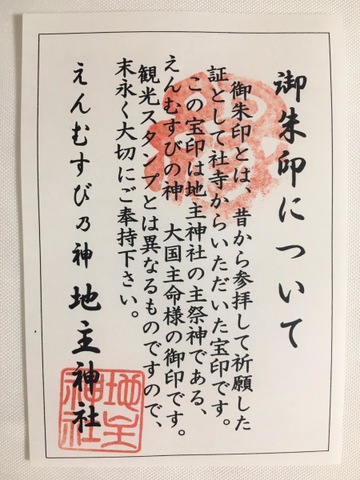 御朱印について
御朱印とは、昔から参拝して祈願した
証として社寺からいただいた宝印です。
この宝印は地主神社の主祭神である、
えんむすびの神　大国主命様の御印です。
観光スタンプとは異なるものですので、
末永く大切にご奉持下さい。
えんむすび乃神 地主神社
地主
神社